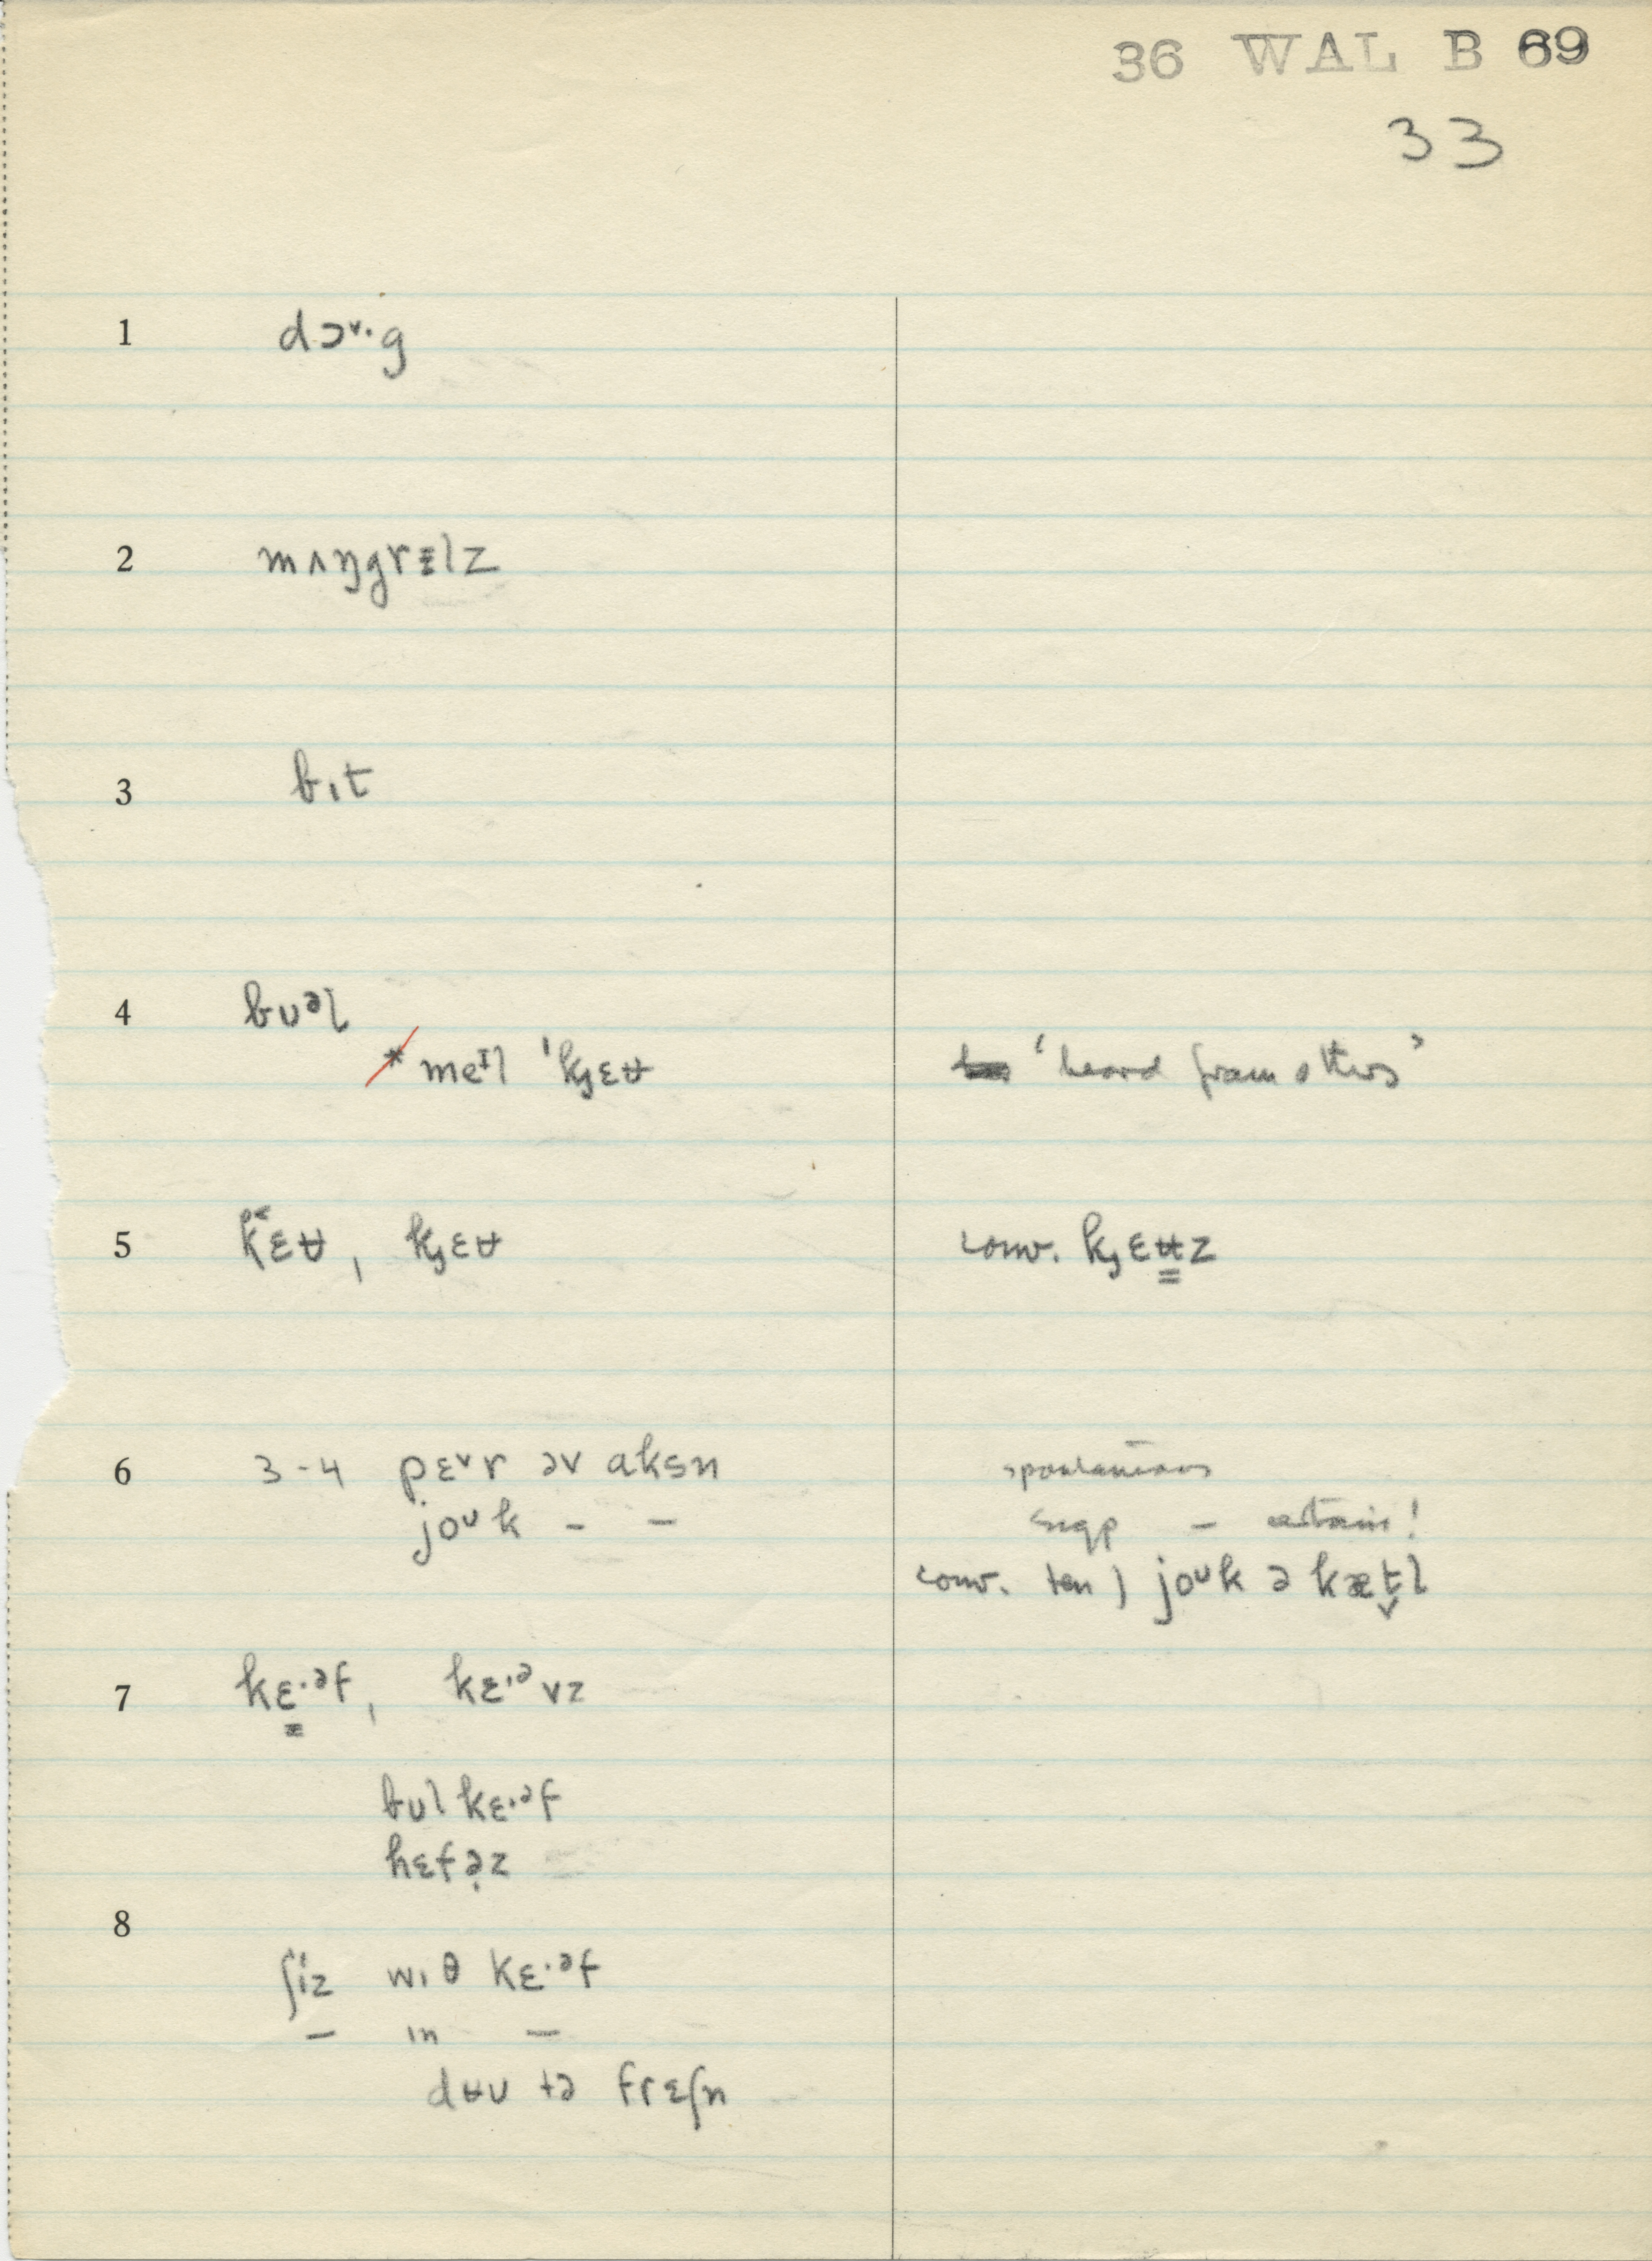 36 WAL B 69
33
1 dɔ˅·g
2 mʌŋgrɛlz
3 bɪt
4 bʊᵊl
* meᶦl ˈkjɛʉ ‘heard from others’
5 k˂ɛʉ, kjɛʉ conv. kjɛʉz
6 3-4 pɛ˅r əv aksn spontaneous
joᶷk – – sugp –
conv. ten) joᶷk ə kæt̬l
7 kɛ·ᵊf, kɛ·ᵊvz
bʊl kɛ·ᵊf
hɛfə̣z
8
ʃiz wɪθ kɛ·ᵊf
– ɪn –
dʉʊ tə frɛʃn